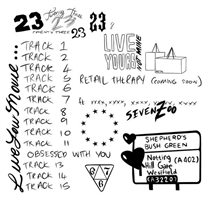 23
23
LIVE
YOURS
NOT MINE
TRACK 1
TRACK 2
TRACK 3
TRACK 4
TRACK 5
TRACK 6
TRACK 7
TRACK 8
TRACK 9
TRACK 10
TRACK 11
OBSESSED WITH YOU
TRACK 13
TRACK 14
TRACK 15
RETAIL THERAPY (COMING SOON)
ft xxxx, xxxx, xxxxx, xxxx
SEVEN Zoo
6
7
SHEPHERD'S
BUSH GREEN
Notting
Hill Gate
(A402)
Westfield
(A3220)